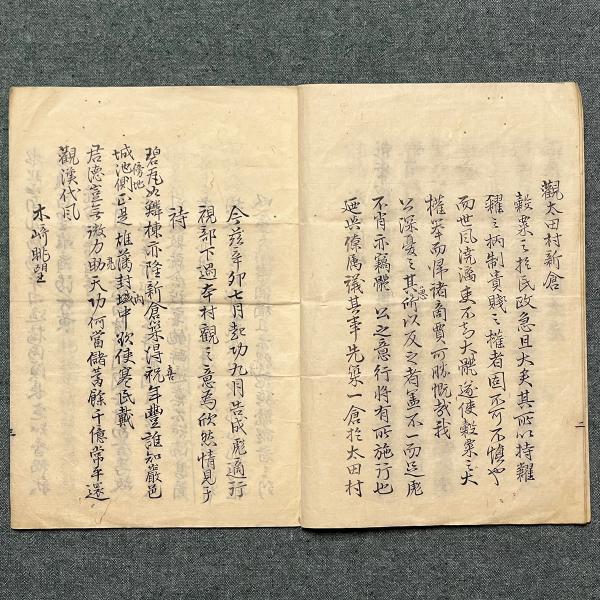 觀太田村新倉
穀粟之於民政急且大矣其所以持糶
糴之柄制貴賤之權者固不可不慎也
而世風澆漓吏不知大體遂使穀粟之大
權擧而歸諸商賈可勝慨哉我
公深憂之其所以反之者蓋不一而足彪
不肖亦竊體 公之意行將有所施行也
廼與僚属議其事先築一倉於太田村
今茲辛卯七月起功九月告成彪適行
視部下過本村觀之意為欣然情見乎
詩
碧瓦如鱗棟亦隆新倉築得祝年豐誰知嚴邑
城池側正是雄藩封域中欲使寒民戴
君德豈無微力助天功何當儲蓄餘千億常平還
觀漢代風
木崎眺望
二